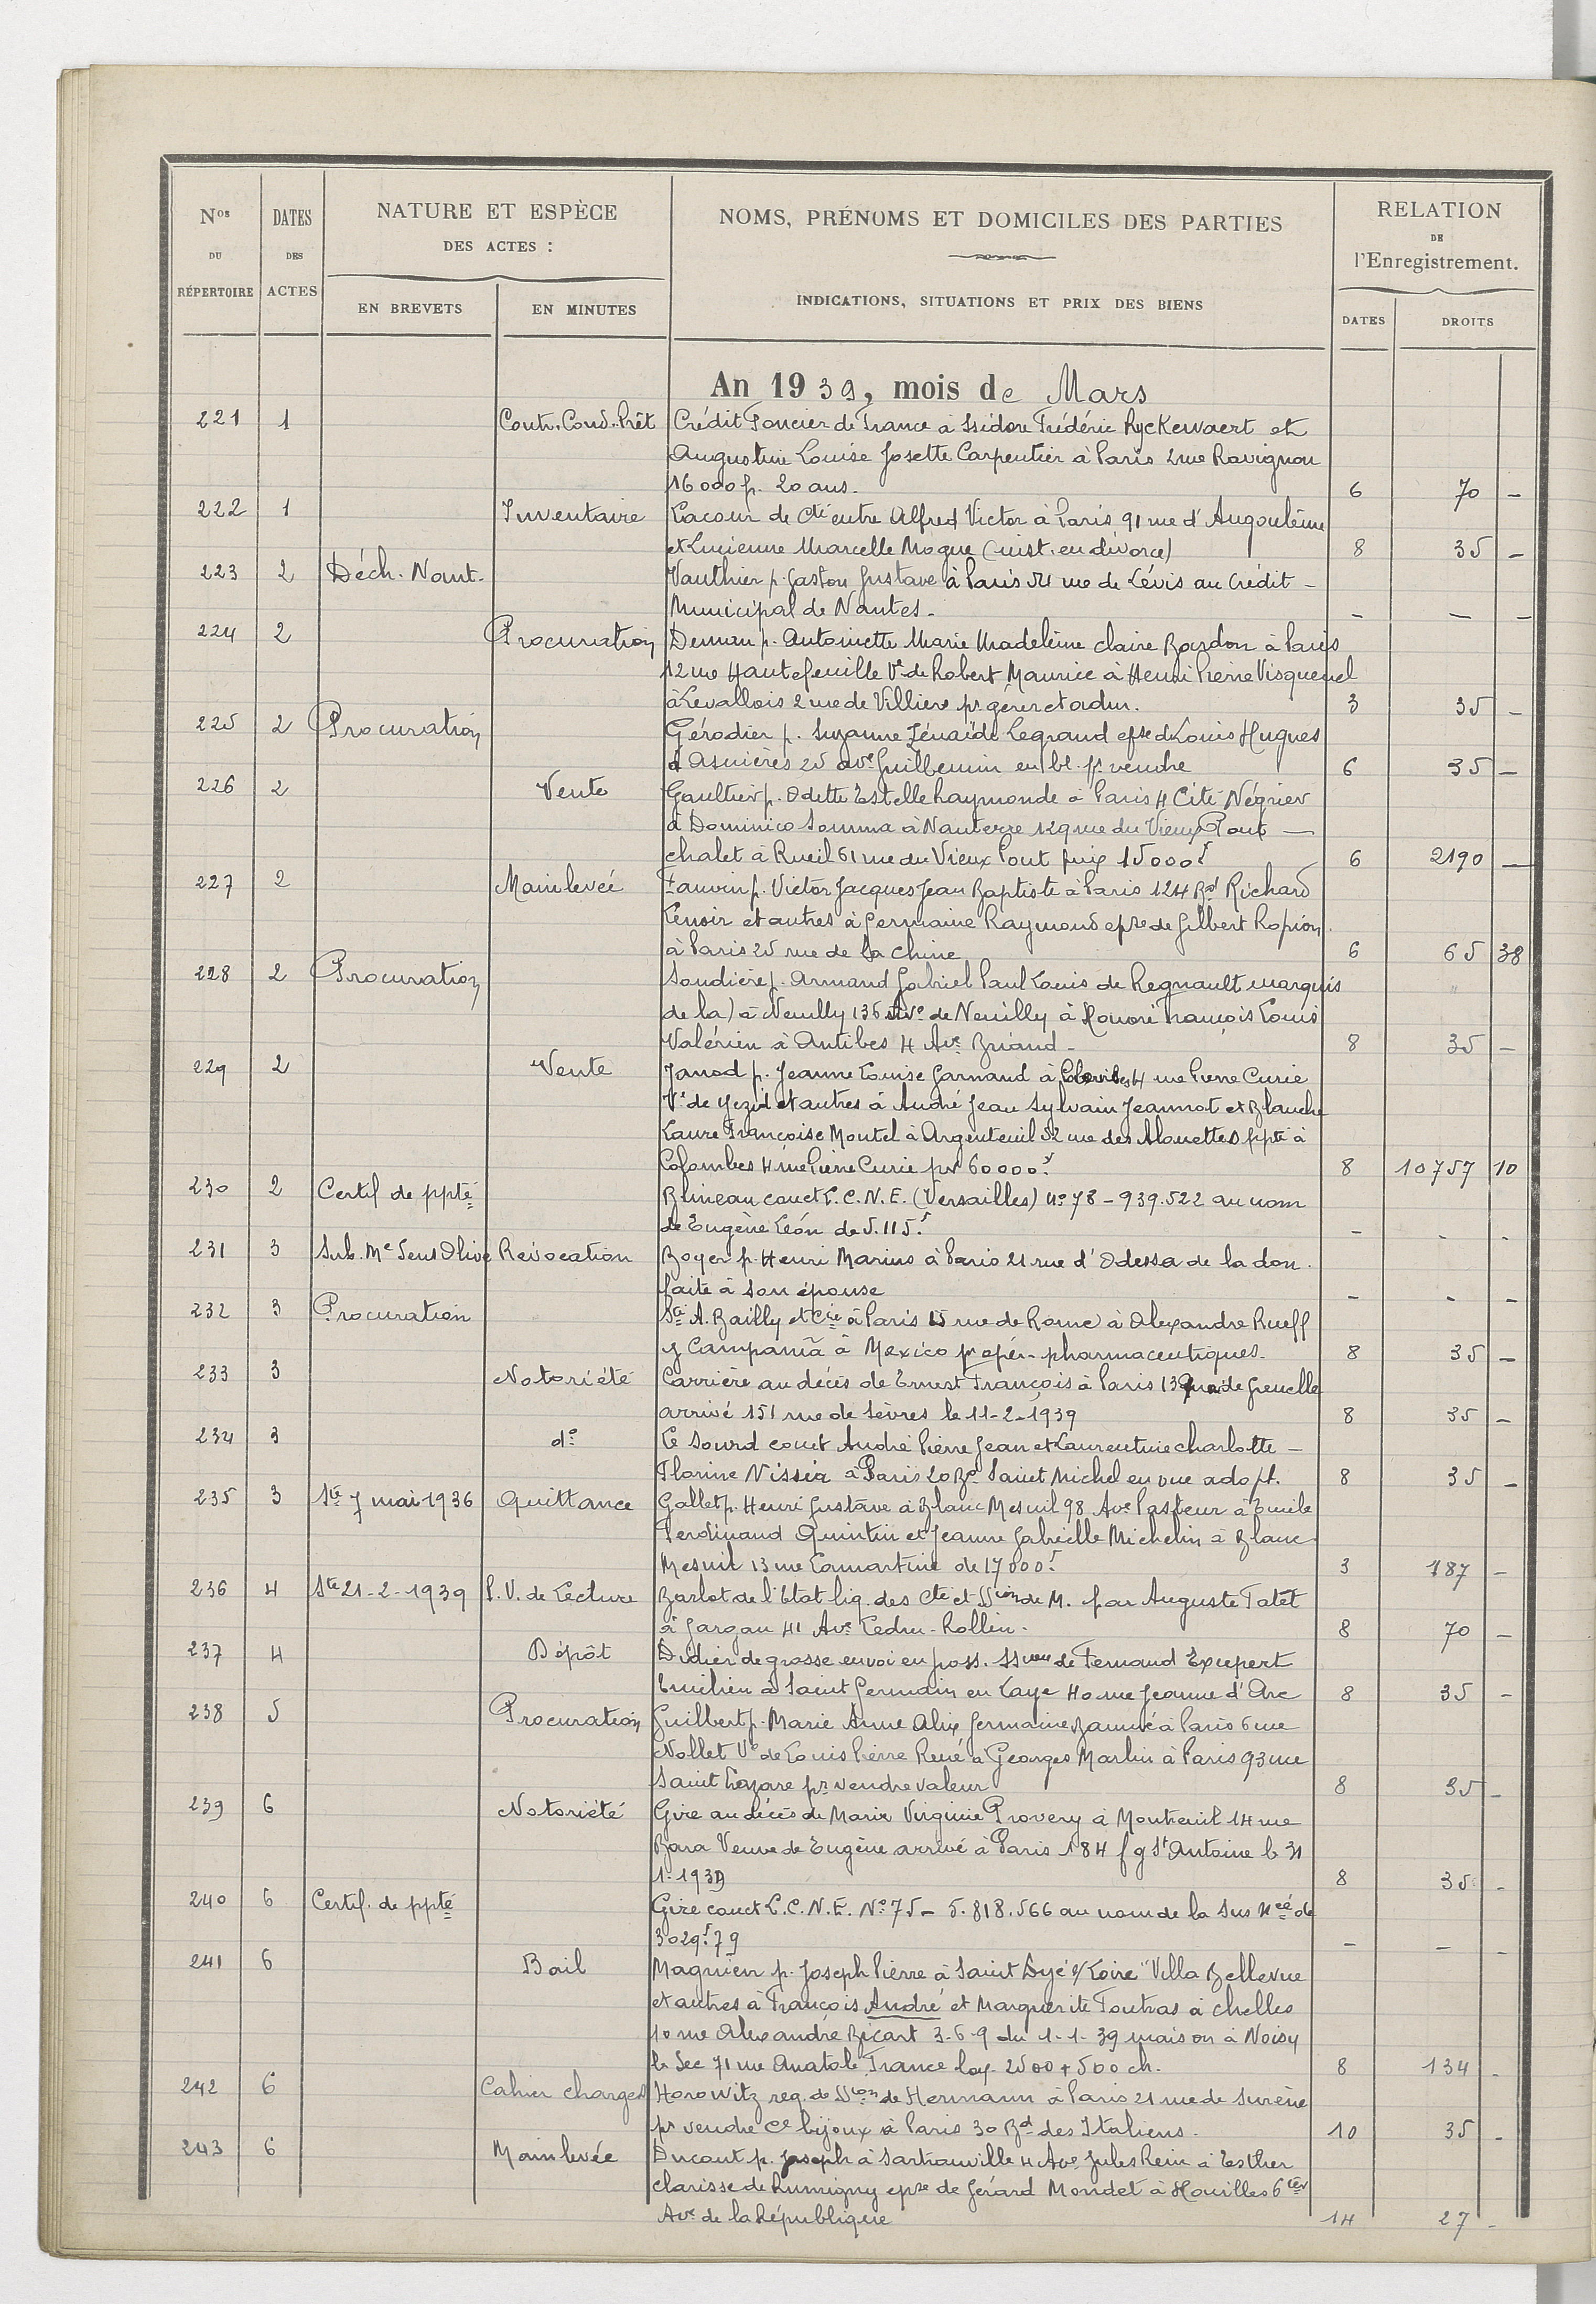 Nos DU RÉPERTOIRE
DATES DES ACTES
NATURE ET ESPÈCE DES ACTES :
EN BREVETS
EN MINUTES
NOMS, PRÉNOMS ET DOMICILES DES PARTIES
INDICATIONS, SITUATIONS ET PRIX DES BIENS
RELATION DE l'Enregistrement.
DATES
DROITS
An 1939, mois de Mars
221 1 Contr. Cond. Prêt Crédit Foncier de France à Isidore Frédéric Ryckewaert et
Augustine Louise Josette Carpentier à Paris 2 rue Ravignan
16000 f. 20 ans. 6 70 —
222 1 Inventaire Lacour de Cté entre Alfred Victor à Paris 91 rue d'Angoulême
et Lucienne Marcelle Mogue (inst. en divorce) 8 35 —
223 2 Déch. Nant. Vauthier p. Gaston Gustave à Paris 54 rue de Lévis au Crédit —
Municipal de Nantes — — — —
224 2 Procuration p. Antoinette Marie Madeleine Claire Bardon à Paris
12 rue Hautefeuille Ve de Robert Maurice à Henri Pierre Visquenel
à Levallois 2 rue de Villiers pr gérer et adm. 3 35 —
225 2 Procuration Gérodier p. Suzanne Zénaïde Legrand épse de Louis Hugues
à Asnières 25 ave Guillemin en bl. pr vendre 6 35 —
226 2 Vente Gaultier p. Odette Estelle Raymonde à Paris 4 Cité Négrier
à Dominico Somma à Nanterre 129 rue du Vieux Pont —
chalet à Rueil 61 rue du Vieux Pont prix 15000f 6 2190 —
227 2 Mainlevée Fauvin p. Victor Jacques Jean Baptiste à Paris 124 Bd Richard
Lenoir et autres à Germaine Raymond epse de Gilbert Ropion
à Paris 25 rue de la Chine 6 65 38
228 2 Procuration Soudière p. Armand Gabriel Paul Louis de Regnault marquis
de la) à Neuilly 136 Ave de Neuilly à Honoré François Louis
Valérien à Antibes 4 Ave Briand — 8 35 —
229 2 Vente Janod p. Jeanne Louise Garnaud à Colombes 4 rue Pierre Curie
Ve de Yezid et autres à André Jean Sylvain Jeannot et Blanche
Laure Françoise Montel à Argenteuil 52 rue des Alouettes ppté à
Colombes 4 rue Pierre Curie pr 60000f 8 10757 10
230 2 Certif de ppté Blineau conct L.C.N.E. (Versailles) No 78 - 939.522 au nom
de Eugène Léon de 5.115f — - -
231 3 Sub. Me Sens Olive Révocation Boyer p. Henri Marius à Paris 21 rue d'Odessa de la don.
faite à son épouse — - —
232 3 Procuration Sté A. Bailly et Cie à Paris 15 rue de Rome à Alexandre Rueff
y Campania à Mexico pr opér. pharmaceutiques. 8 35 —
233 3 Notoriété Carrière au décès de Ernest François à Paris de Grenelle
arrivé 151 rue de Sèvres le 11-2-1939 8 35 —
234 3 do Le Sourd conct André Pierre Jean et Laurentine Charlotte —
Florine Nissia à Paris 20 Bd Saint Michel en vue adopt. 8 35 —
235 3 Ste 7 mai 1936 Quittance Gallet p. Henri Gustave à Blanc Mesnil 98 Ave Pasteur à Emile
Ferdinand Quintin et Jeanne Gabrielle Michelin à Blanc
Mesnil 13 rue Lamartine de 17000f 3 187 —
236 4 Ste 21-2-1939 P.V. de Lecture Barlot de l'Etat liq. des Cté et SSion de M. par Auguste Tatet
à Gargan 41 Ave Ledru-Rollin. 8 70 —
237 4 Dépôt Didier de grosse envoi en poss. SSion de Fernand Exupert
Emilien à Saint Germain en Laye 40 rue Jeanne d'Arc 8 35 -
238 5 Procuration Guilbert p. Marie Anne Alix Germaine à Paris 6 rue
Nollet Ve de Louis Pierre René à Georges Marlin à Paris 93 rue
Saint Lazare pr vendre valeur 8 35 -
239 6 Notoriété Gire au décès de Marie Virginie Provery à Montreuil 14 rue
Bara Veuve de Eugène arrivé à Paris 184 fg St Antoine le 31
1-1939 8 35 -
240 6 Certif. de ppté Gire conct L.C.N.E. No 75 - 5.818.566 au nom de la Sus Née de
3029f79 — — -
241 6 Bail Magnien p. Joseph Pierre à Saint Dyé s/Loire "Villa Bellevue
et autres à François André et Marguerite Toutras à Chelles
10 rue Alexandre Bicart 3-6-9 du 1-1-39 maison à Noisy
le Sec 71 rue Anatole France loy. 2500 + 500 ch. 8 134 -
242 6 Cahier charges Horowitz req. de SSion de Hermann à Paris 21 rue de Surène
pr vendre Ce bijoux à Paris 30 Bd des Italiens. 10 35 -
243 6 Mainlevée Ducout p. Joseph à Sartrouville 4 Ave Jules Rein à Esther
Clarisse de Rumigny epse de Gérard Mondet à Houilles 6 ter
Ave de la République 14 27 -